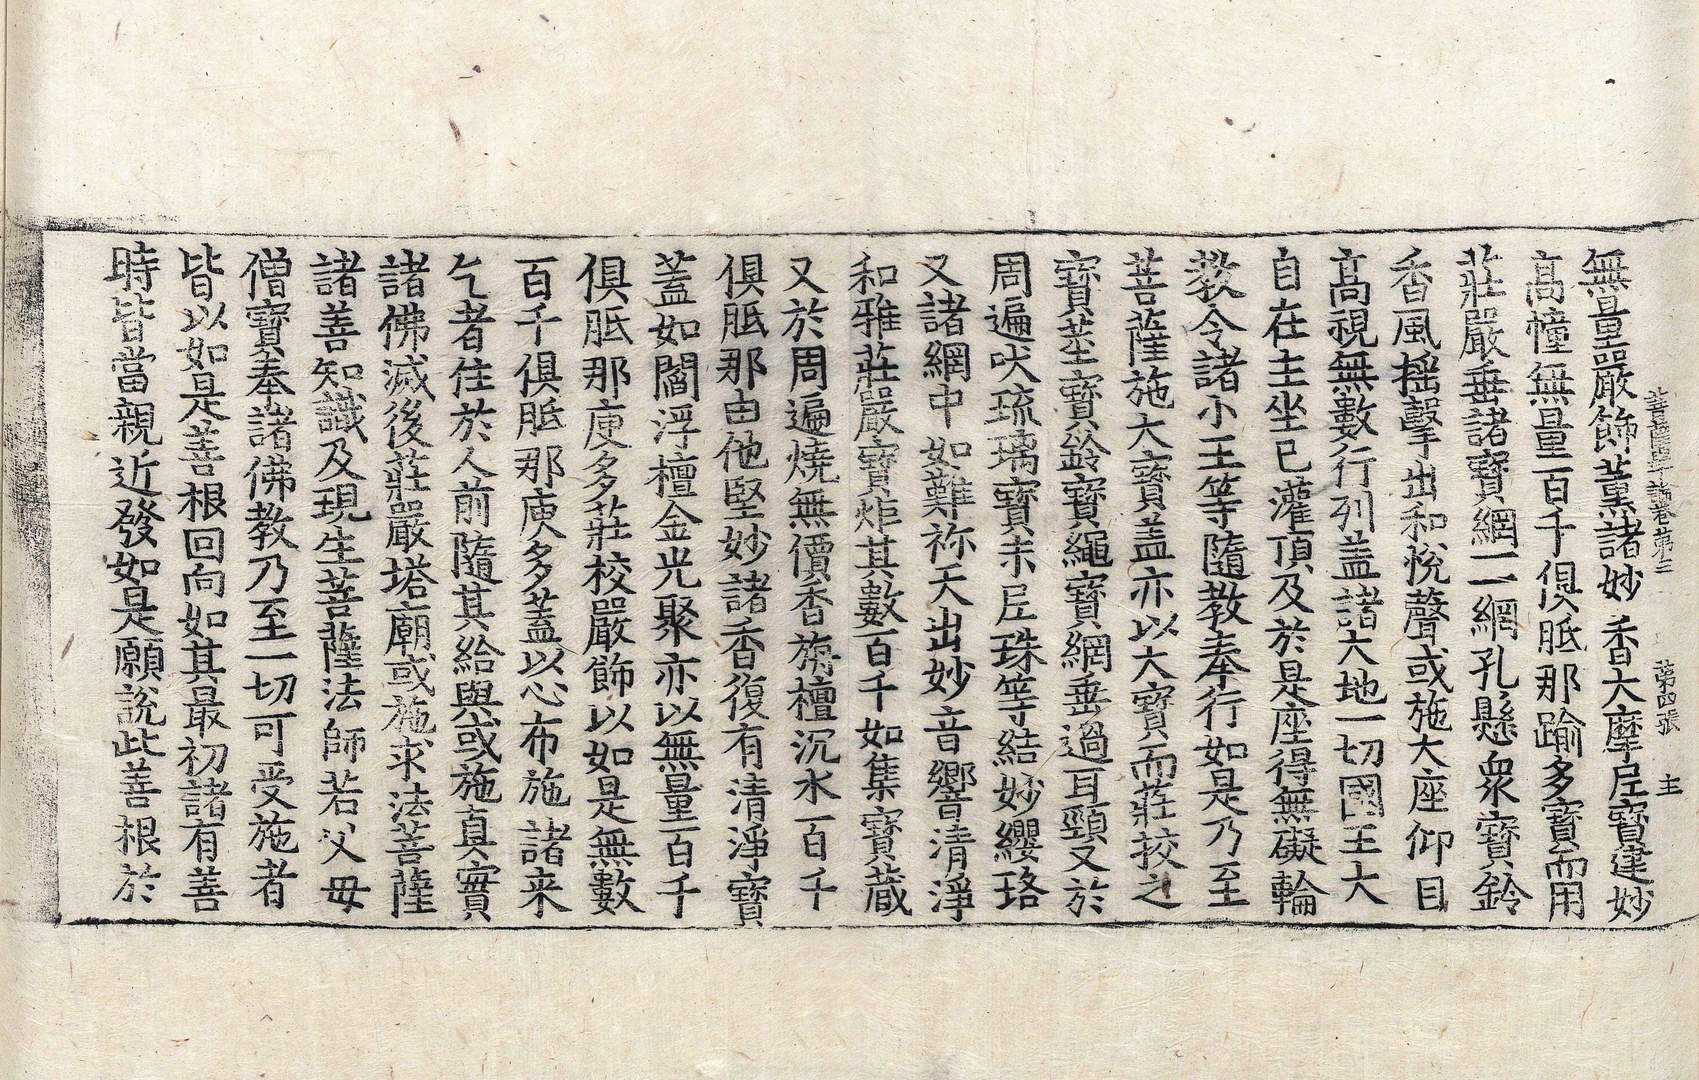 菩薩學論卷第三 第四張 主
無量嚴飾薰諸妙香大摩尼寶建妙
髙幢無量百千俱胝那踰多寶而用
莊嚴垂諸寶網一一網孔懸衆寶鈴
香風揺擊出和恱聲或施大座仰目
髙視無數行列盖諸大地一切國王大
自在主坐已灌頂及於是座得無礙輪
教令諸小王等隨教奉行如是乃至
菩薩施大寶盖亦以大寶而莊挍之
寶莖寶鈴寶繩寶網垂過耳頸又於
周遍吠琉璃寶末尼珠等結妙纓珞
又諸網中如難祢天出妙音響清淨
和雅莊嚴寶炬其數百千如集寶蔵
又於周遍燒無價香旃檀沉水百千
俱胝那由他堅妙諸香復有清淨寶
蓋如閻浮檀金光聚亦以無量百千
俱胝那庾多莊校嚴飾以如是無數
百千俱胝那庾多蓋以心布施諸来
乞者住於人前隨其給與或施真實
諸佛滅後莊嚴塔廟或施求法菩薩
諸善知識及現生菩薩法師若父母
僧寶奉諸佛教乃至一切可受施者
皆以如是善根回向如其最初諸有善
時皆當親近發如是願説此善根於